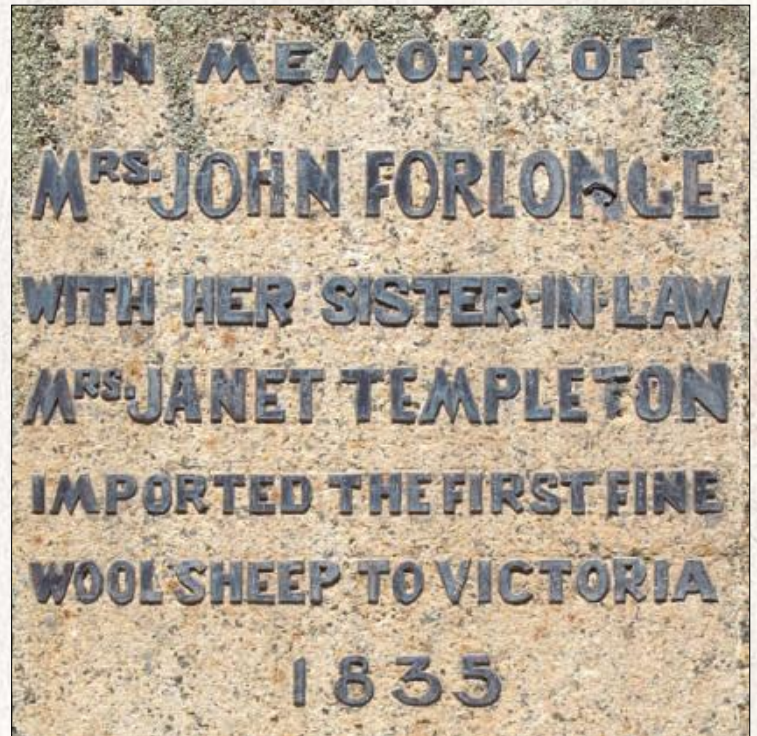 IN MEMORY OF
MRS. JOHN FORLONGE
WITH HER SISTER-IN-LAW
MRS. JANET TEMPLETON
IMPORTED THE FIRST FINE
WOOL SHEEP TO VICTORIA
1835